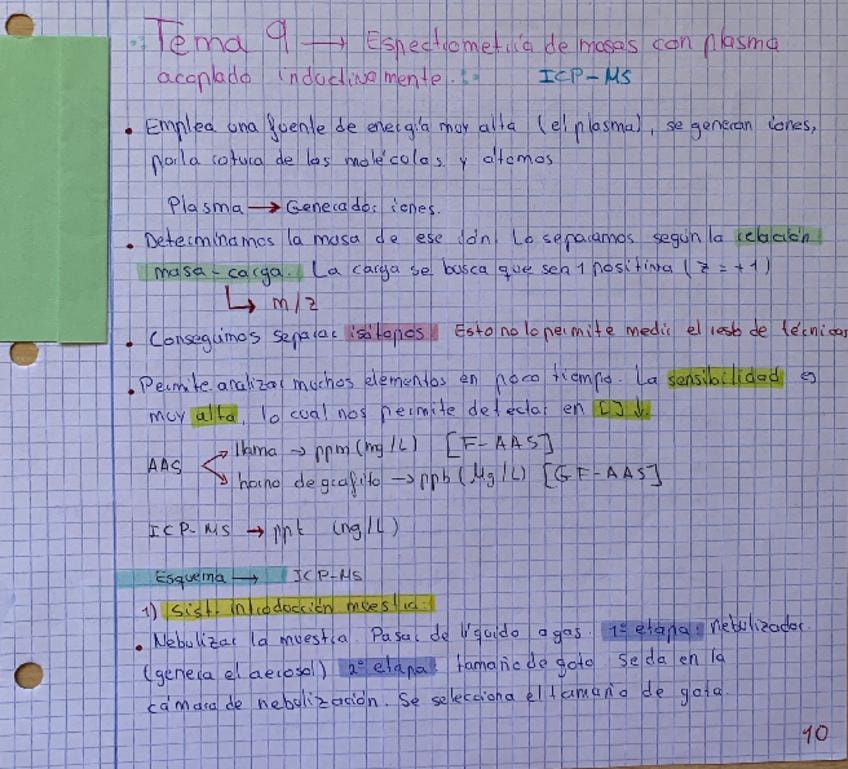 Tema 9 → Espectrometría de masas con plasma
acoplado inductivamente. ICP-MS
• Emplea una fuente de energía muy alta (el plasma), se generan iones,
por la rotura de las moléculas y átomos
Plasma → Generador iones.
• Determinamos la masa de ese ión. Lo separamos según la relación
masa-carga. La carga se busca que sea 1 positiva (z = +1)
↳ m/z
• Conseguimos separar isótopos. Esto no lo permite medir el resto de técnicas
• Permite analizar muchos elementos en poco tiempo. La sensibilidad es
muy alta, lo cual nos permite detectar en [ ] ↓.
AAS
llama → ppm (mg/L) [F-AAS]
horno de grafito → ppb (μg/L) [GF-AAS]
ICP-MS → ppt (ng/L)
Esquema → ICP-MS
1) Sist. introducción muestra:
• Nebulizar la muestra. Pasar de líquido a gas. 1º etapa: nebulizador
(genera el aerosol) 2º etapa: tamaño de gota se da en la
cámara de nebulización. Se selecciona el tamaño de gota.
10